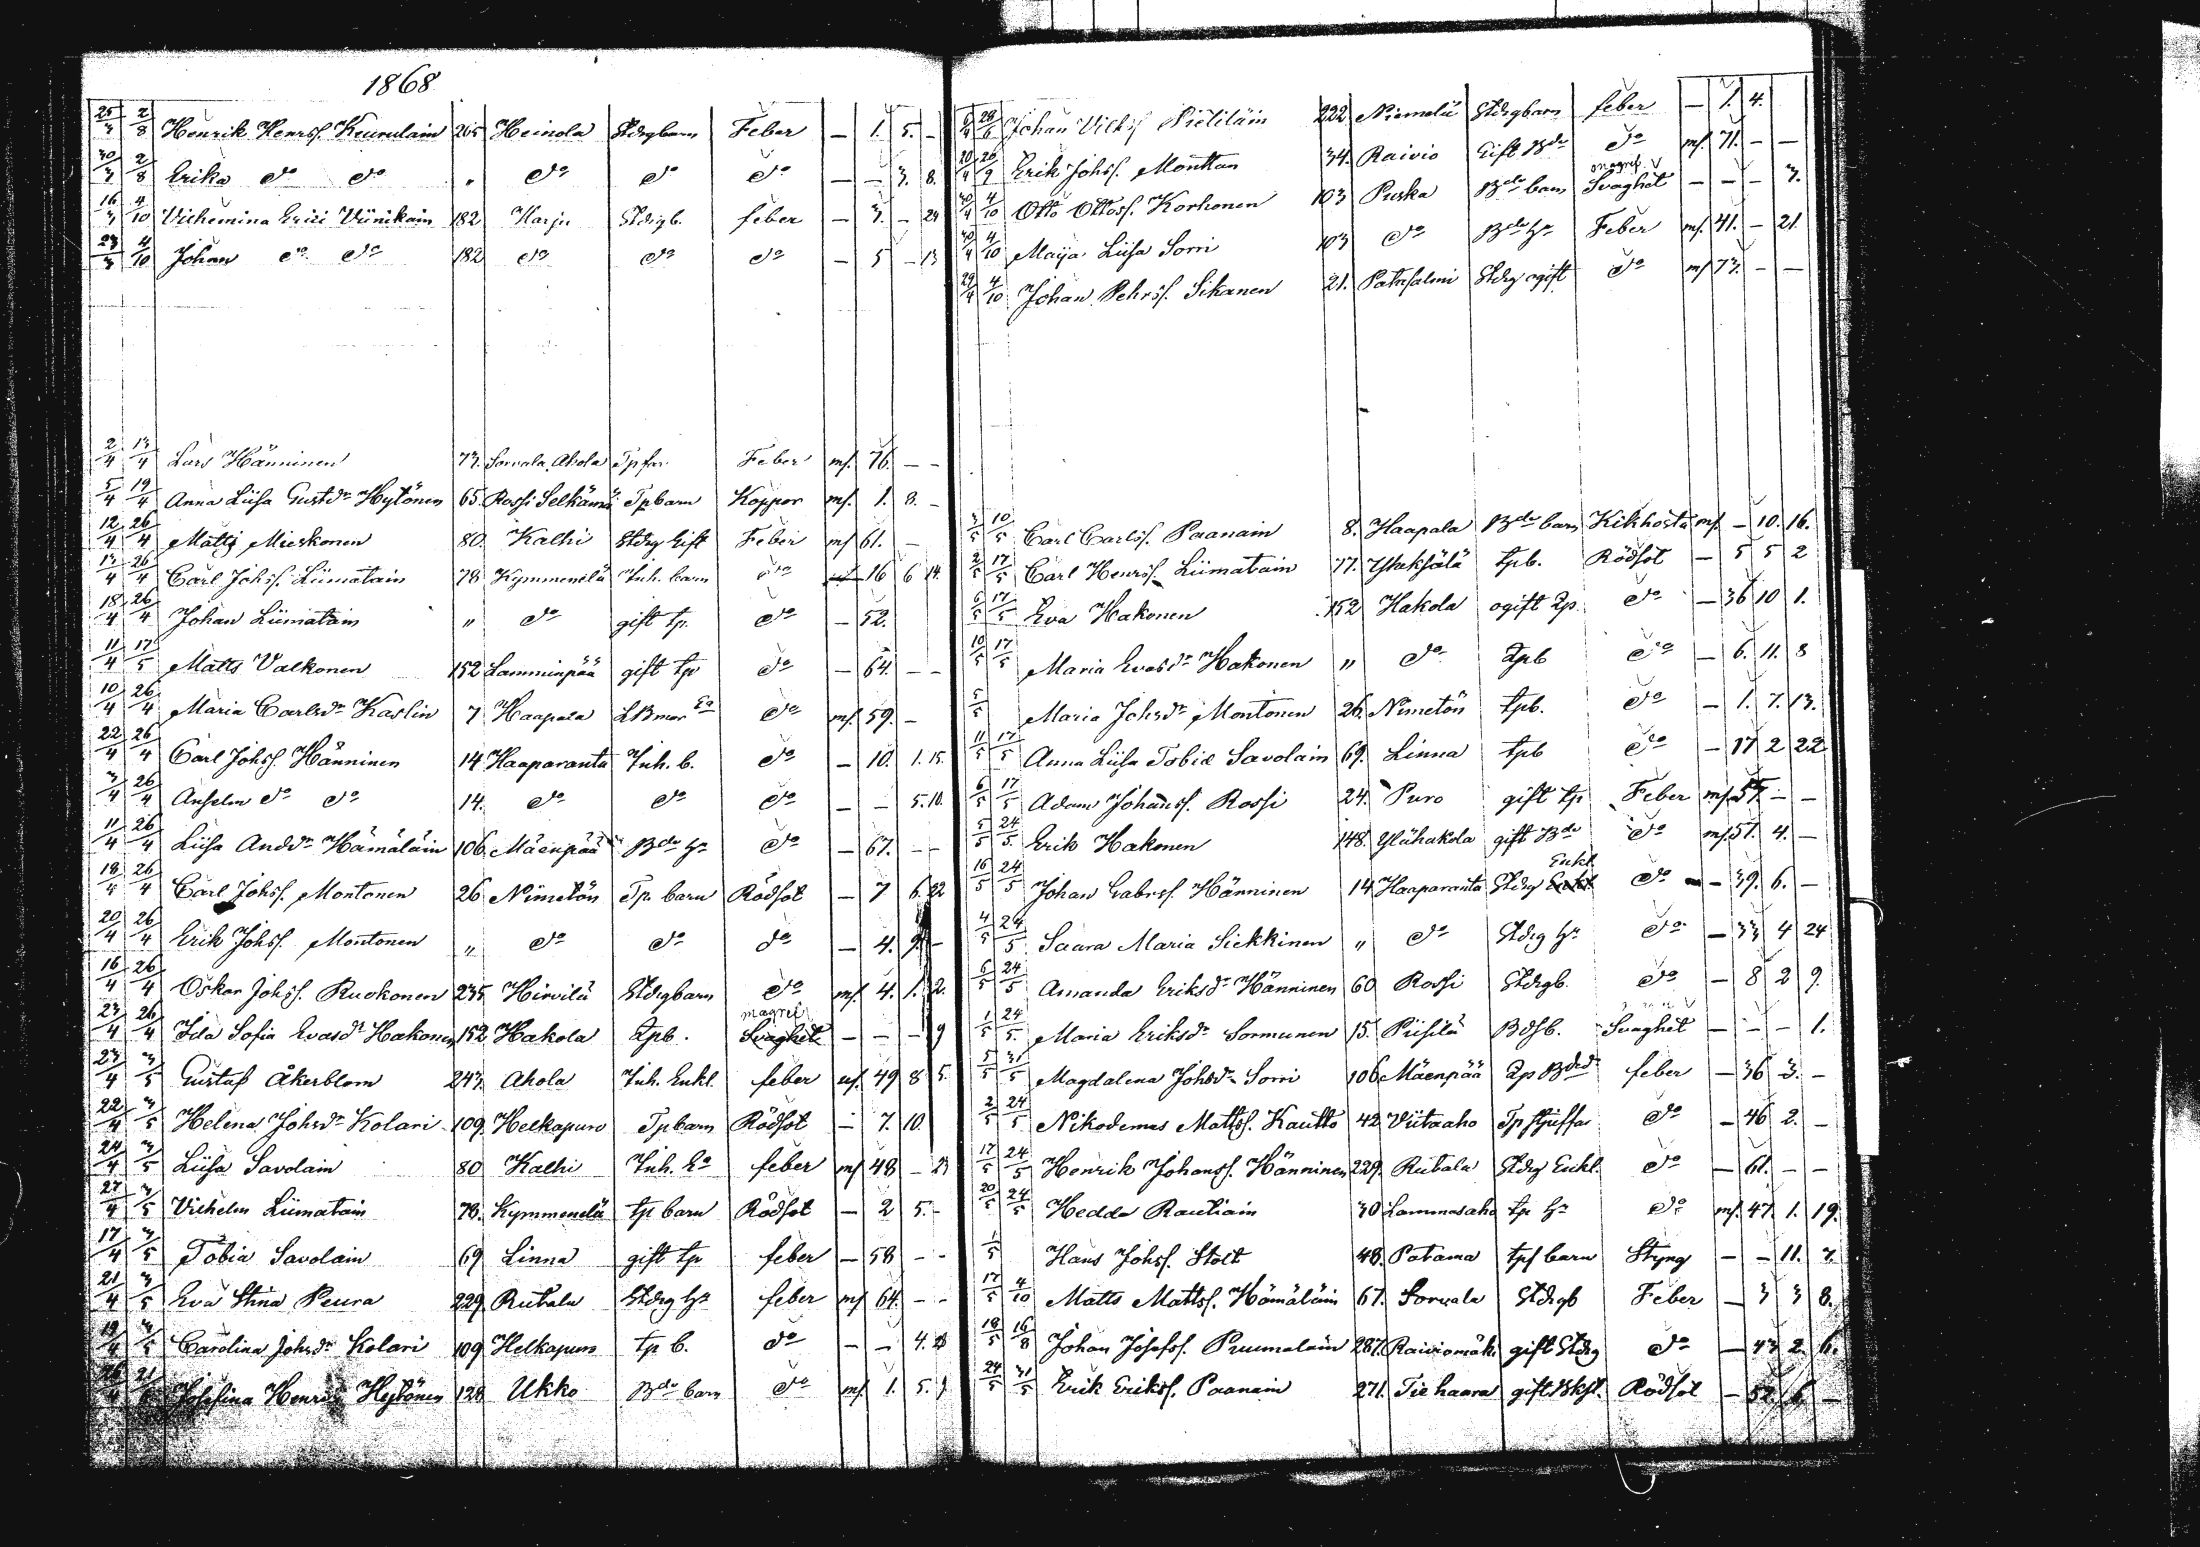 1868
25/3 2/8 Henrik Henrsf. Keurulain 265 Heinola Stdrgbarn Feber — 1. 5. —
30/3 2/8 Erika do do " do do do — — 3. 8.
16/3 4/10 Vilhemina Erici Viinikain 182 Harju Stdrgb. feber — 3. — 24
23/3 4/10 Johan do do 182 do do do — 5 — 13
2/4 13/4 Lars Hänninen 73. Sorvala, Ahola Feber mf. 76. — —
5/4 19/4 Anna Liisa Gustdr Hytönen 65 Rossi Selkämä Tpbarn Koppor mf. 1. 8. —
12/4 26/4 Matts Mieskonen 80. Kalhi Stdrg Gift Feber mf 61. —
13/4 26/4 Carl Johsf. Liimatain 78 Kymmenelä Inh. barn do 16 6 14.
18/4 26/4 Johan Liimatain " do gift tp. do — 52.
11/4 17/5 Matts Valkonen 152 Lamminpää gift tp do — 64. — —
10/4 26/4 Maria Carlsdr Kaslin 7 Haapala do mf. 59. —
22/4 26/4 Carl Johsf. Hänninen 14 Haaparanta Inh. b. do — 10. 1. 15.
3/4 26/4 Anselm do do 14. do do do — — 5. 10.
11/4 26/4 Liisa Anddr Hämäläin 106 Mäenpää Bde hu do — 67. — —
18/4 26/4 Carl Johsf. Montonen 26 Nimetön Tp. barn Rödsot — 7 6. 22
20/4 26/4 Erik Johsf. Montonen " do do do — 4. 9. —
16/4 26/4 Oskar Johsf. Ruokonen 235 Hirvilä Stdrgbarn do mf. 4. 1. 2.
magref
23/4 26/4 Ida Sofia Evasdr Hakonen 152 Hakola Tpb. Svaghet — — — 9
23/4 3/5 Gustaf Åkerblom 243. Ahola Inh. Enkl. feber mf. 49 8 5.
22/4 3/5 Helena Johsdr Kolari 109. Helkapuro Tpbarn Rödsot — 7. 10.
24/4 3/5 Liisa Savolain 80 Kalhi Inh. Ea feber mf 48 — 23
27/4 3/5 Vilhelm Liimatain 78. Kymmenelä tp barn Rödsot — 2 5. —
17/4 3/5 Tobia Savolain 69 Linna gift tp feber — 58 — —
21/4 3/5 Eva Stina Peura 229. Riitala Stdrg hu feber mf 64. — —
19/4 3/5 Carolina Johsdr Kolari 109 Helkapuro tp b. do — — 4. 23
Josefina Henrsdr Hytönen 128 Ukko Bde barn do mf. 1. 5.
28/6 Johan Vilhsf Pietiläin 222 Niemelä Stdrgbarn feber — 1. 4.
20/4 26/9 Erik Johsf. Monttan 34. Raivio Gift Bde do mf. 71. — —
magref
30/4 4/10 Otto Ottosf. Korhonen 103 Puska Bde barn Svaghet — — — 3.
30/4 4/10 Maija Liisa Sorri 103 do Bde hu Feber mf. 41. — 21
29/4 4/10 Johan Pehrsf. Sikanen 21. Patasalmi Stdrg ogift do mf 73. — —
3/5 10/5 Carl Carlsf. Paanain 8. Haapala Bde barn Kikhosta mf. — 10. 16.
2/5 17/5 Carl Henrsf. Liimatain 77. tpb. Rödsot — 5 5 2
6/5 17/5 Eva Hakonen 152 Hakola ogift Tp. do — 36 10 1.
10/5 17/5 Maria Evasdr Hakonen " do Tpb do — 6. 11. 8
5/5 Maria Johsdr Montonen 26. Nimetön tpb. do — 1. 7. 13.
11/5 17/5 Anna Liisa Tobiæ Savolain 69. Linna tpb do — 17 2 22
6/5 17/5 Adam Johansf. Rossi 24. Puro gift tp Feber mf. 57. — —
5/5 24/5 Erik Hakonen 148. Ylähakola gift Bde do mf. 51. 4. —
Enkl.
16/5 24/5 Johan Gabrsf. Hänninen 14 Haaparanta Stdrg do — 39. 6. —
4/5 24/5 Saara Maria Siekkinen " do Stdrg hu do — 33 4 24
6/5 24/5 Amanda Eriksdr Hänninen 60 Rossi Stdrgb. do — 8 2 9.
1/5 24/5 Maria Eriksdr Sormunen 15. Piisilä Bdsb. Svaghet — — — 1.
5/5 31/5 Magdalena Johsdr Sorri 106 Mäenpää feber — 36 3. —
2/5 24/5 Nikodemus Mattsf. Kautto 42 Viitaaho Tp styffar do — 46 2. —
17/5 24/5 Henrik Johansf. Hänninen 229. Riitala Stdrg Enkl. do — 61. — —
20/5 24/5 Hedda Rautiain 30 Lammasaho tp hu do mf. 47. 1. 19.
1/5 Hans Johsf. Stolt 48. Patama tpf barn Styng — — 11. 7.
17/5 4/10 Matts Mattsf. Hämäläin 67. Sorvala Stdrgb Feber — 3 3 8.
18/5 16/8 Johan Josefsf. Puumalain 287. Raiviomäki gift Stdrg do — 43 2. 6.
24/5 31/5 Erik Eriksf. Paanain 271. Tiehaara gift Rödsot — 52. 6. —